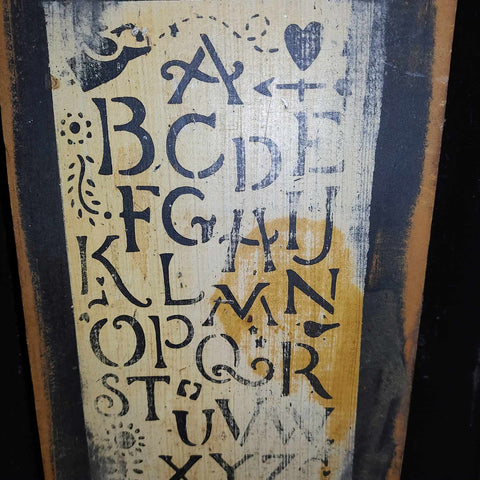 A
BCDE
FGHIJ
KLMN
OPQR
STUVW
XYZ